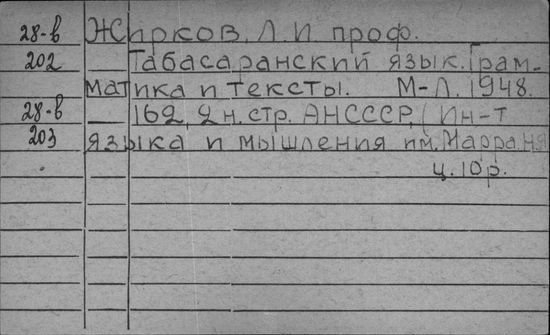 28-в Жирков, Л. И. проф.
202 Табасаранский язык. Грам-
матика и тексты. М-Л. 1948.
28-в 162, 2 н. стр. АНСССР, (Ин-т
203 языка и мышления им. Марра н/я
ц. 10 р.